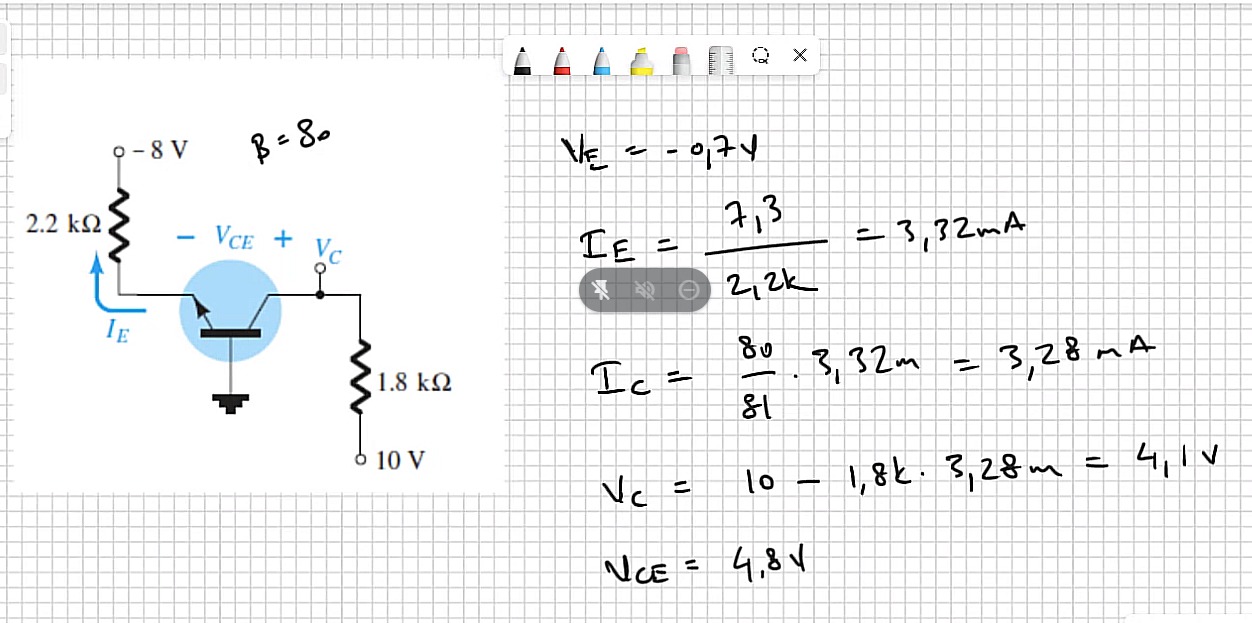 − 8 V
β = 80
2.2 kΩ
− VCE +
VC
IE
1.8 kΩ
10 V
VE = - 0,7 V
IE = 7,3 / 2,2k = 3,32 mA
IC = 80 / 81 . 3,32m = 3,28 mA
VC = 10 - 1,8k . 3,28m = 4,1 V
VCE = 4,8 V